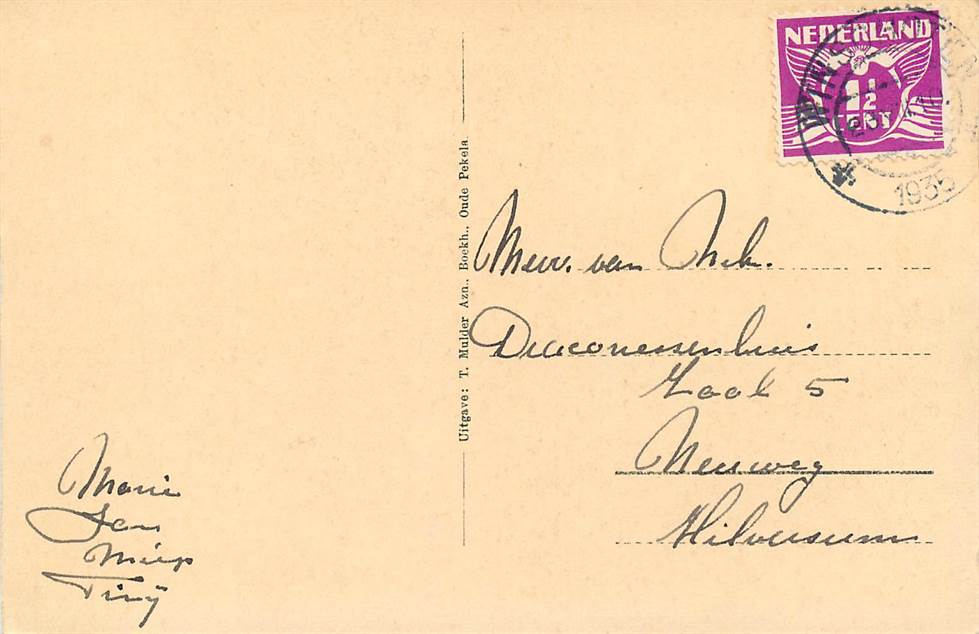 NEDERLAND
1½
CENT
1935
Uitgave: T. Mulder Azn., Boekh., Oude Pekela
Mevr. van
Diaconessenhuis
Zaal 5
Neuweg
Hilversum
Marie
Jan
Miep
Tiny